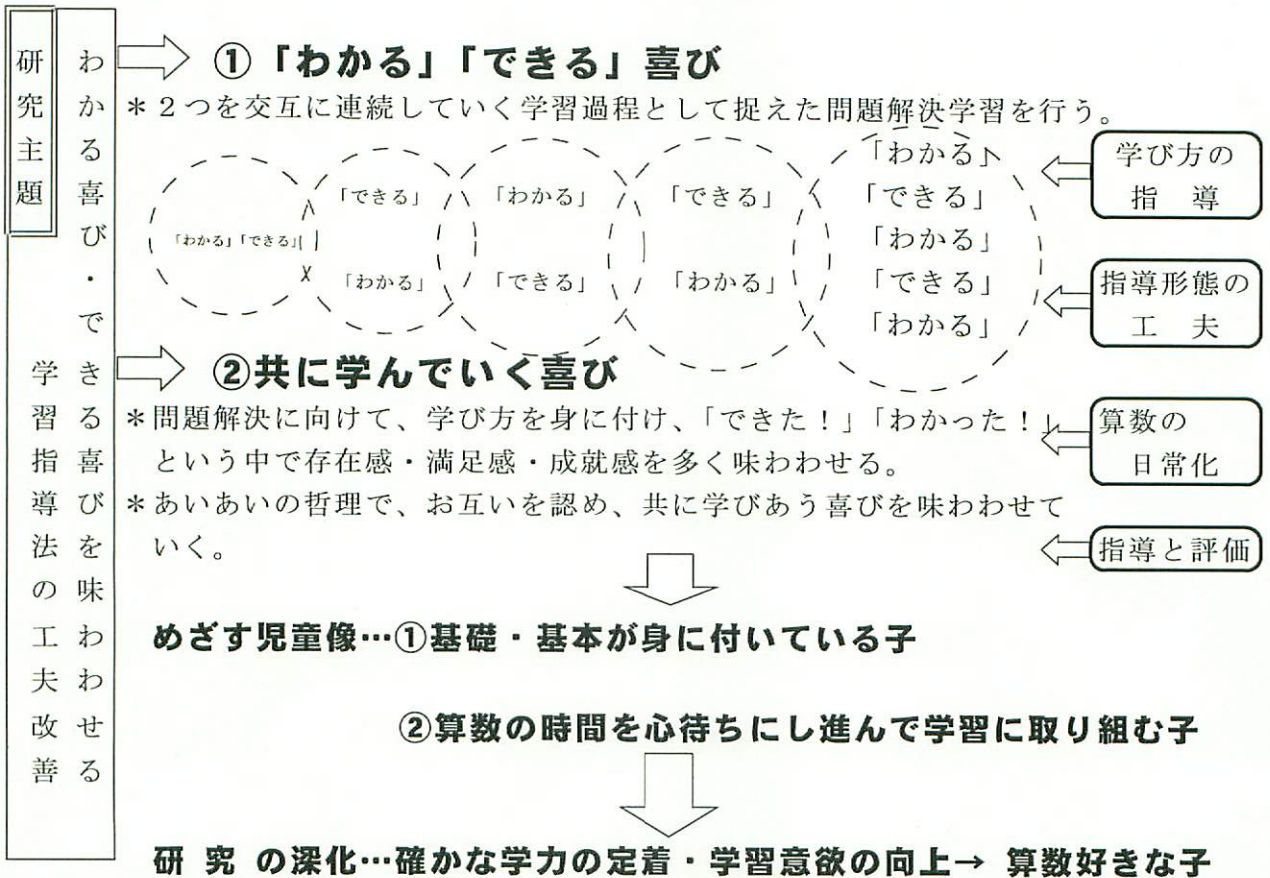 研究主題
わかる喜び・できる喜びを味わわせる
学習指導法の工夫改善
①「わかる」「できる」喜び
＊２つを交互に連続していく学習過程として捉えた問題解決学習を行う。
「わかる」「できる」
「できる」
「わかる」
「わかる」
「できる」
「できる」
「わかる」
「わかる」
「できる」
「わかる」
「できる」
「わかる」
学び方の
指　導
指導形態の
工　夫
②共に学んでいく喜び
＊問題解決に向けて、学び方を身に付け、「できた！」「わかった！」
という中で存在感・満足感・成就感を多く味わわせる。
＊あいあいの哲理で、お互いを認め、共に学びあう喜びを味わわせて
いく。
算数の
日常化
指導と評価
めざす児童像…①基礎・基本が身に付いている子
②算数の時間を心待ちにし進んで学習に取り組む子
研 究 の深化…確かな学力の定着・学習意欲の向上→ 算数好きな子